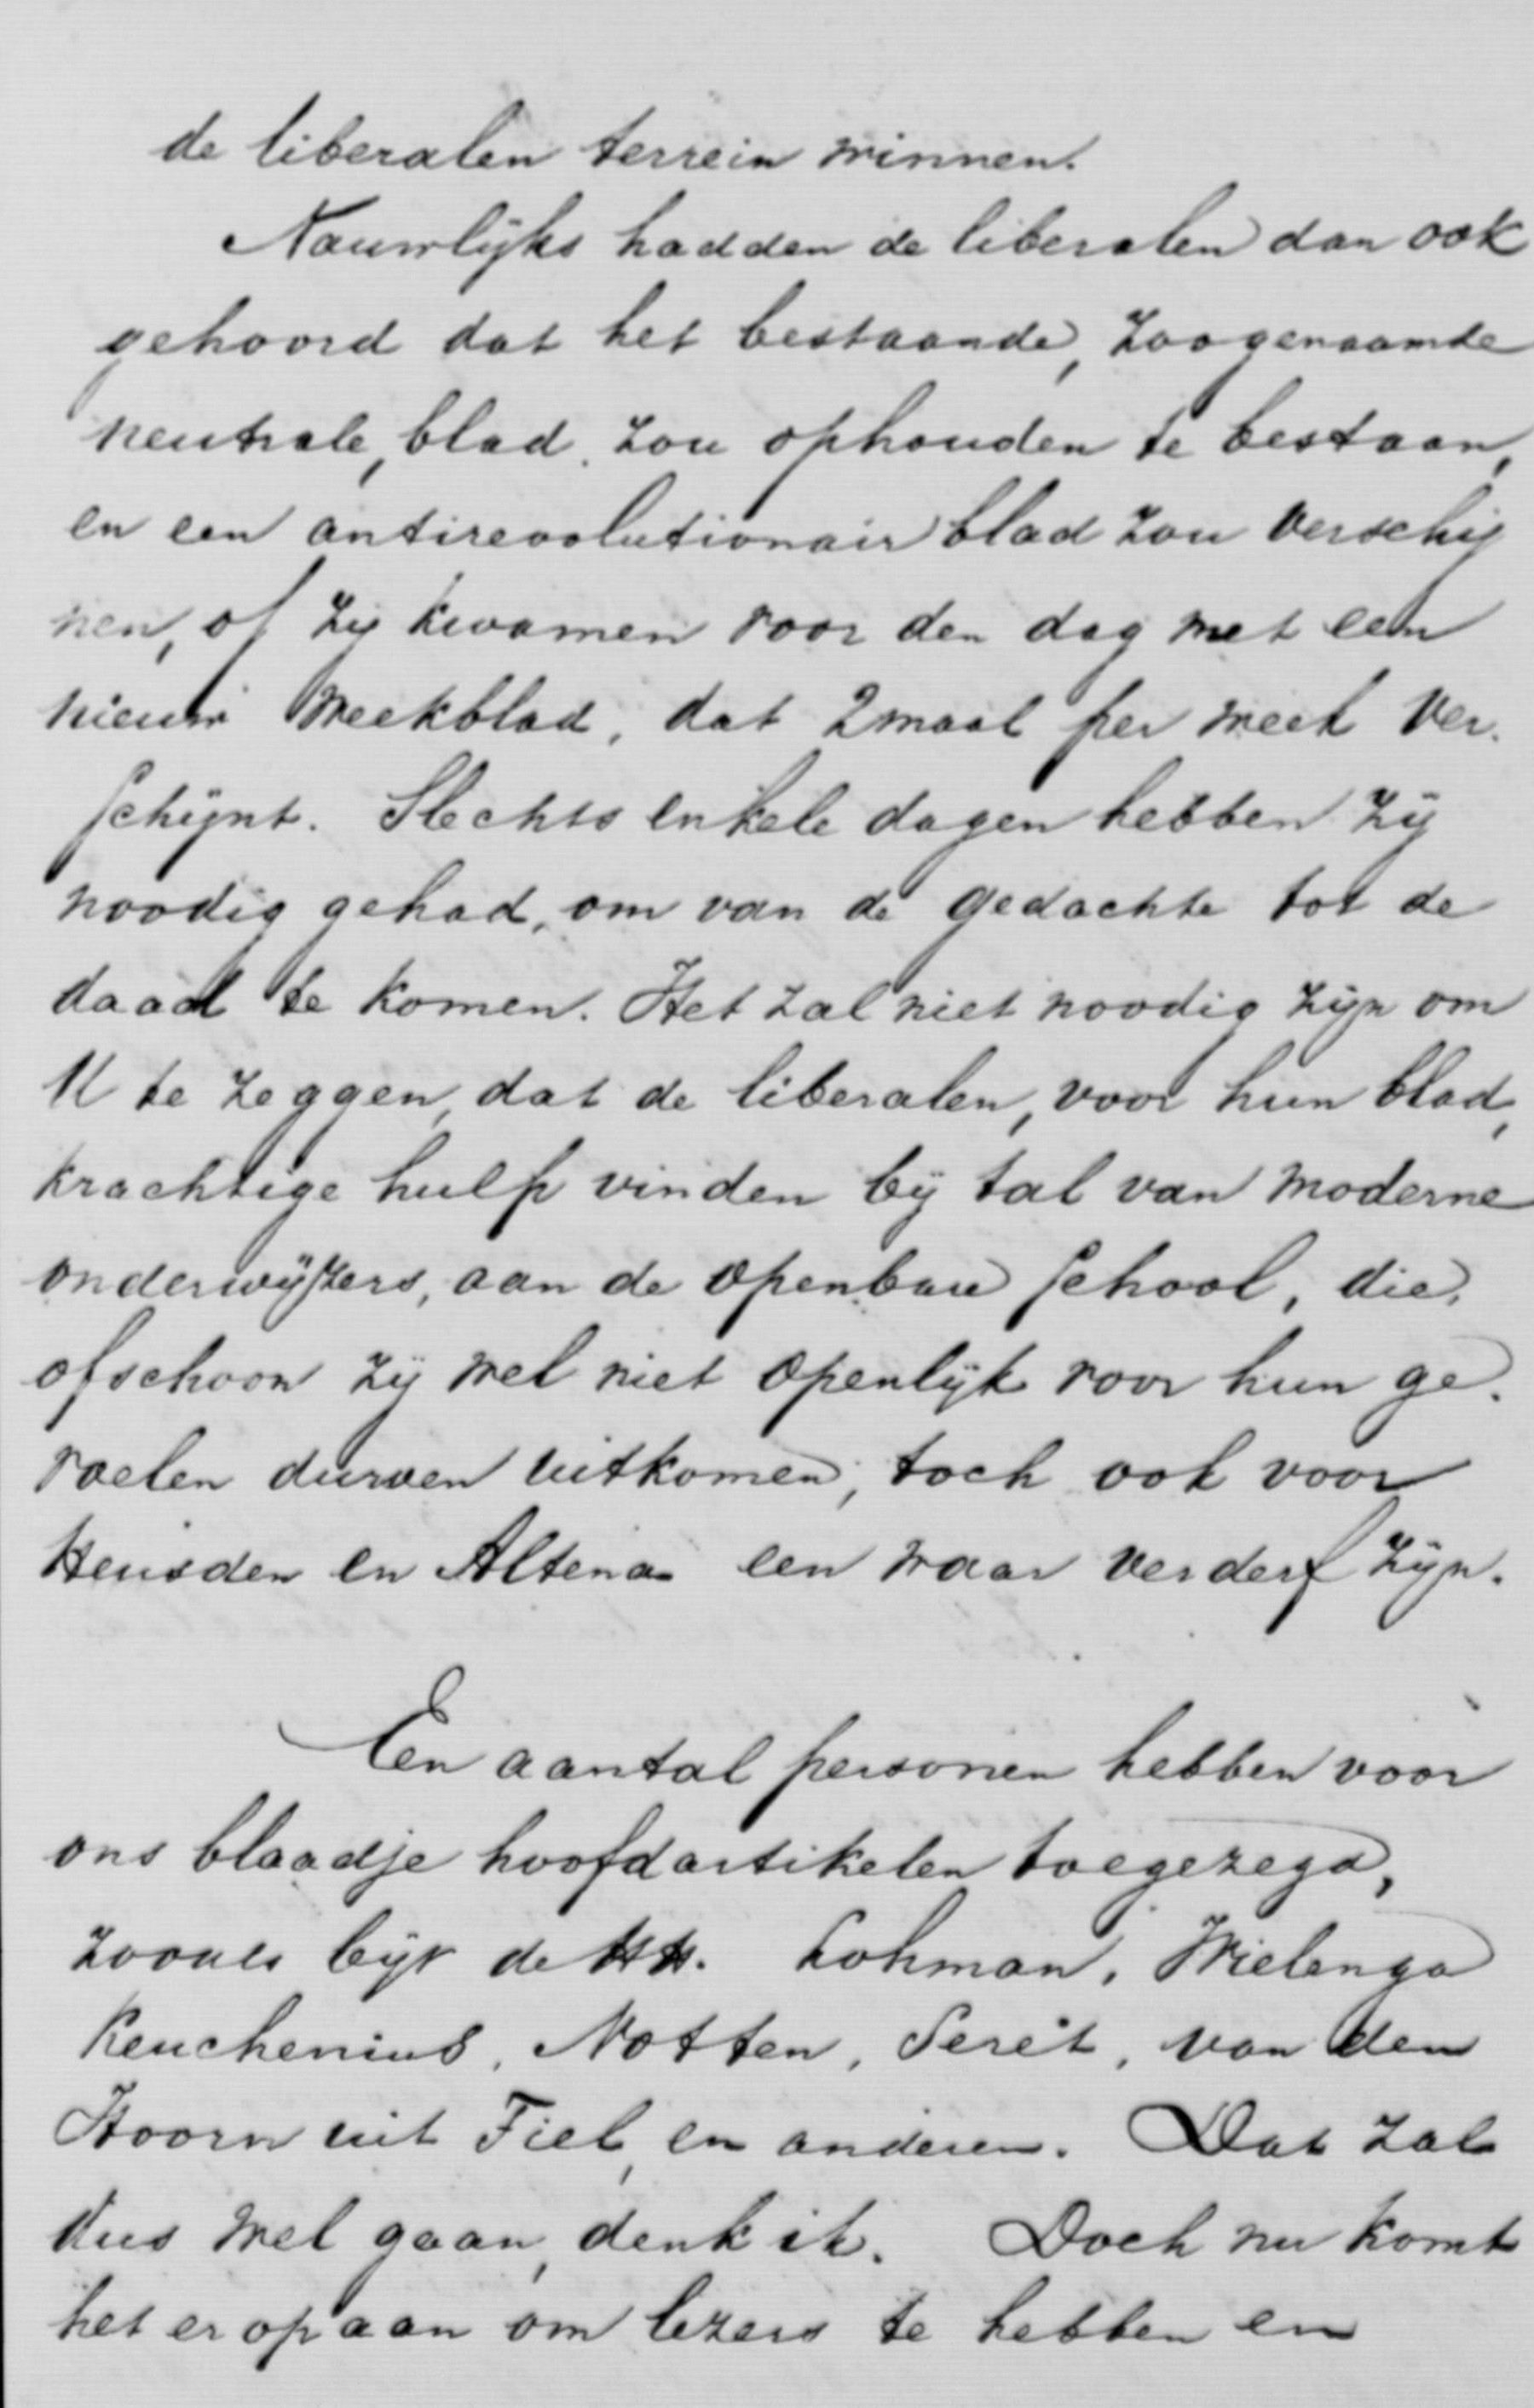 de liberalen terrein winnen.
Nauwlijks hadden de liberalen dan ook
gehoord dat het bestaande, zoogenaamde
neutrale, blad, zou ophouden te bestaan,
en een antirevolutionair blad zou verschij
nen, of zij kwamen voor den dag met een
nieuw weekblad, dat 2maal per week ver-
schijnt. Slechts enkele dagen hebben zij
noodig gehad, om van de gedachte tot de
daad te komen. Het zal niet noodig zijn om
U te zeggen, dat de liberalen, voor hun blad,
krachtige hulp vinden bij tal van moderne
onderwijzers, aan de openbare school, die,
ofschoon zij wel niet openlijk voor hun ge-
voelen durven uitkomen, toch ook voor
Heusden en Altena een waar verderf zijn.
Een aantal personen hebben voor
ons blaadje hoofdartikelen toegezegd,
zooals bijv de HH. Lohman, Wielenga
Keuchenius, Notten, Seret, van den
Hoorn uit Tiel, en anderen. Dat zal
dus wel gaan, denk ik. Doch nu komt
het er op aan om lezers te hebben en